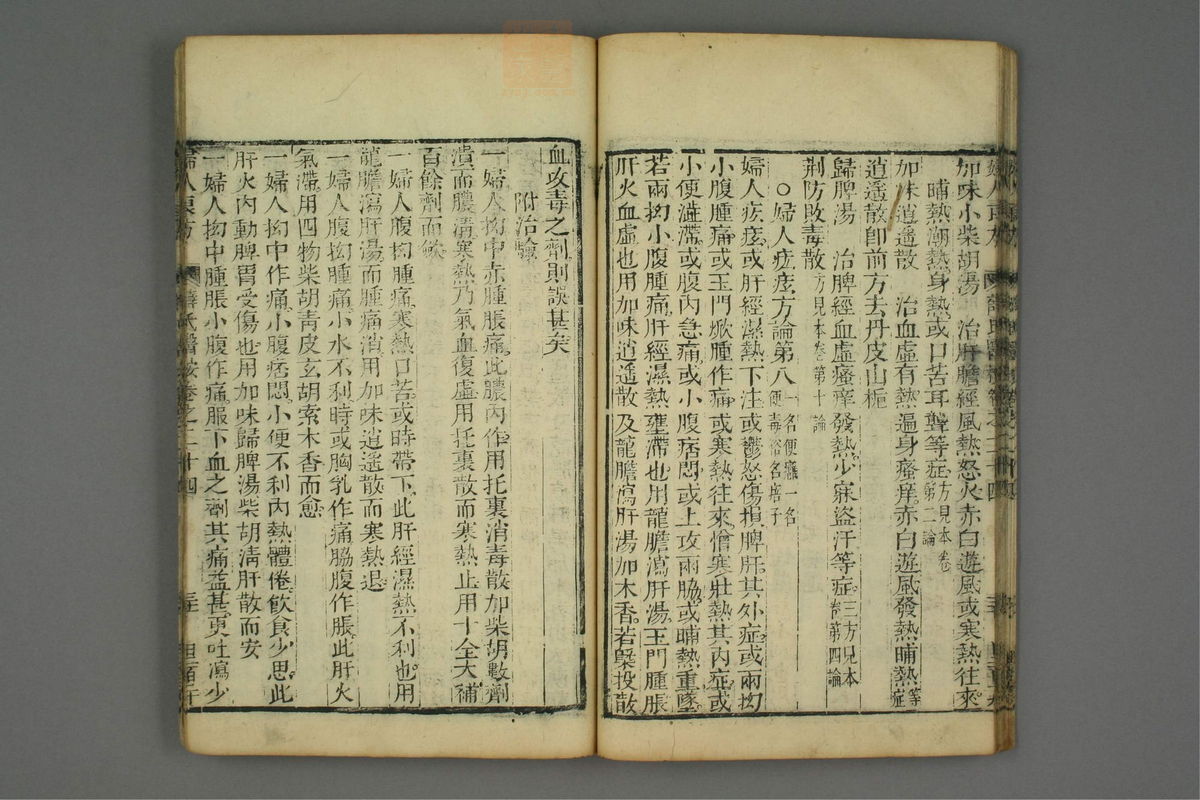 加味小柴胡湯　治肝膽經風熱怒火赤白遊風或寒熱往來
晡熱潮熱身熱或口苦耳聾等症方見本卷第二論
加味逍遙散　治血虛有熱遍身瘙痒赤白遊風發熱晡熱等症
逍遙散卽前方去丹皮山梔
歸脾湯　治脾經血虛瘙痒發熱少寐盜汗等症三方見本卷第四論
荆防敗毒散方見本卷第十論
○婦人㽱痃方論第八一名便癰一名便毒俗名㾦子
婦人㽱痃或肝經濕熱下注或鬱怒傷損脾肝其外症或兩拗
小腹腫痛或玉門焮腫作痛或寒熱往來憎寒壯熱其内症或
小便澁滯或腹内急痛或小腹痞悶或上攻兩脇或晡熱重墜
若兩拗小腹腫痛肝經濕熱壅滯也用龍膽瀉肝湯玉門腫脹
肝火血虛也用加味逍遙散及龍膽瀉肝湯加木香若槩投散
血攻毒之劑則誤甚矣
附治驗
一婦人拗中赤腫脹痛此膿内作用托裏消毒散加柴胡數劑
潰而膿淸寒熱乃氣血復虛用托裏散而寒熱止用十全大補
百餘劑而斂
一婦人腹拗腫痛寒熱口苦或時帶下此肝經濕熱不利也用
龍膽瀉肝湯而腫痛消用加味逍遙散而寒熱退
一婦人腹拗腫痛小水不利時或胸乳作痛脇腹作脹此肝火
氣滯用四物柴胡靑皮玄胡索木香而愈
一婦人拗中作痛小腹痞悶小便不利内熱體倦飲食少思此
肝火内動脾胃受傷也用加味歸脾湯柴胡淸肝散而安
一婦人拗中腫脹小腹作痛服下血之劑其痛益甚更吐瀉少
婦人良方　薛氏醫按卷之二十四